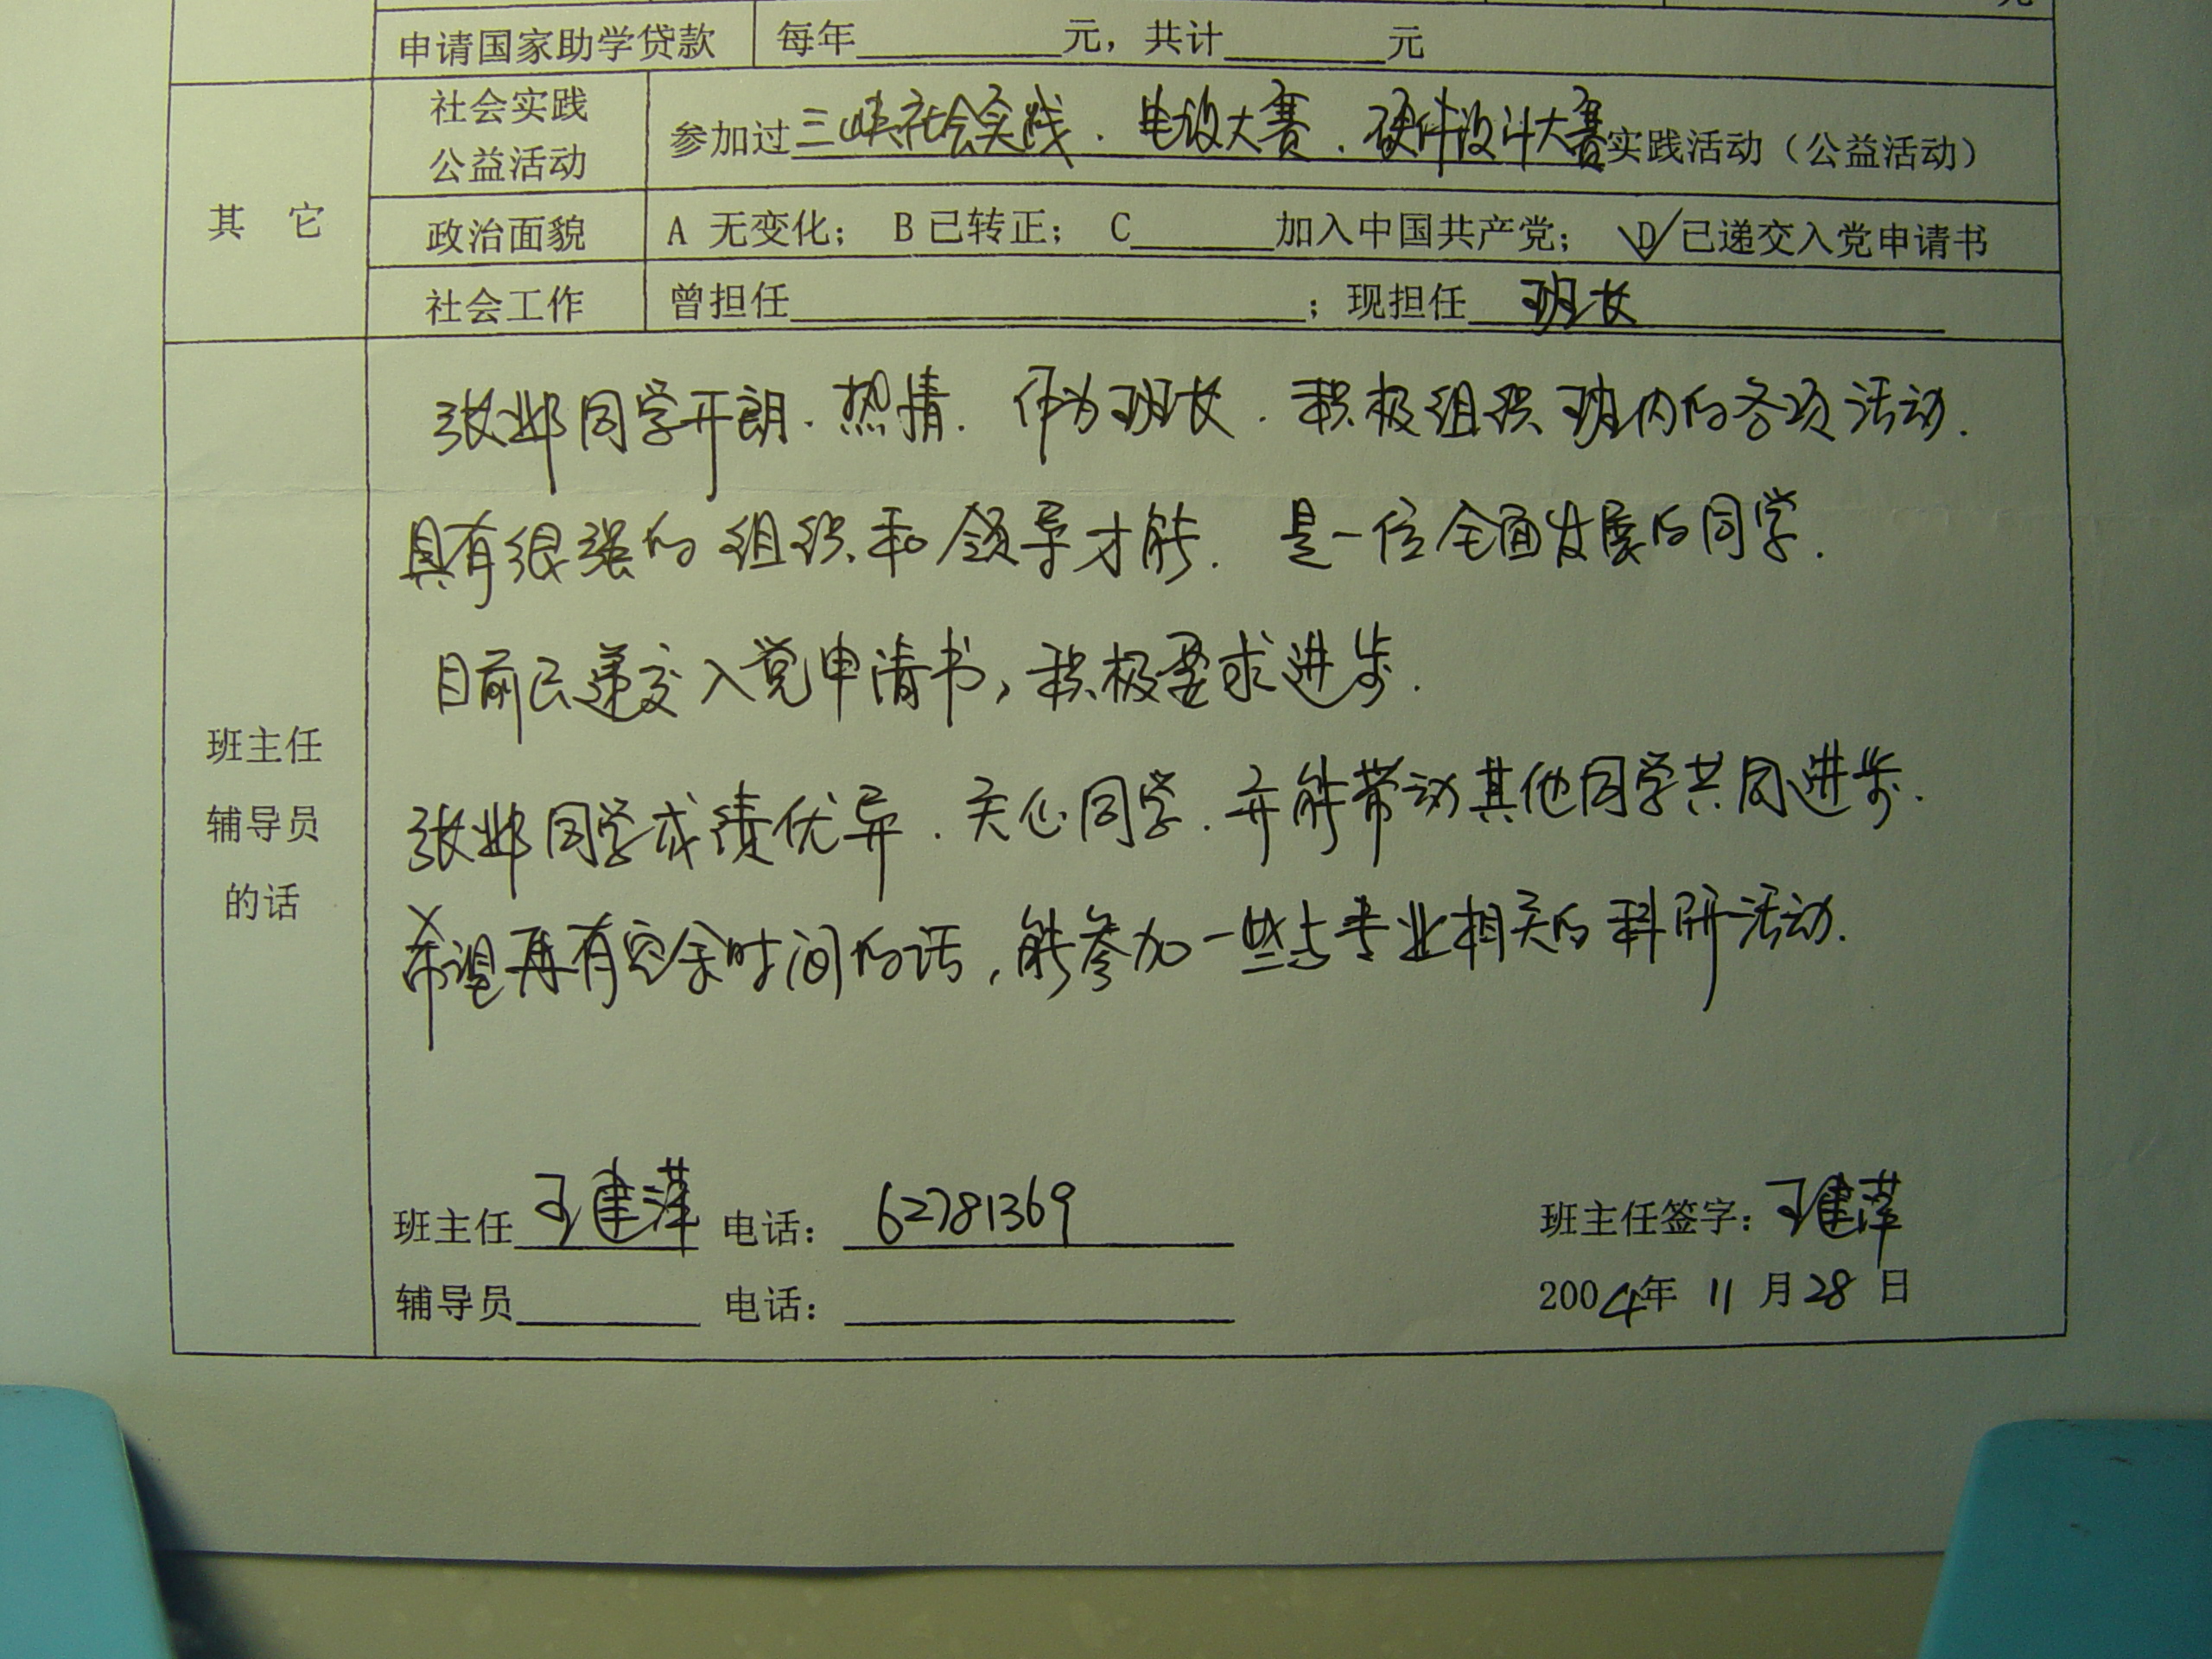 元
申请国家助学贷款 每年________元，共计________元
社会实践
公益活动
参加过三峡社会实践．电设大赛．硬件设计大赛实践活动（公益活动）
其 它
政治面貌 A 无变化； B 已转正； C______加入中国共产党； D✓已递交入党申请书
社会工作 曾担任________；现担任 班长
张邺同学开朗．热情．作为班长．积极组织班内的各项活动．
具有很强的组织和领导才能．是一位全面发展的同学．
目前已递交入党申请书，积极要求进步．
张邺同学成绩优异．关心同学．并能带动其他同学共同进步．
希望再有空余时间的话，能参加一些与专业相关的科研活动．
班主任
辅导员
的话
班主任 王建萍 电话：62781369 班主任签字：王建萍
辅导员______ 电话：________ 2004年 11 月 28 日